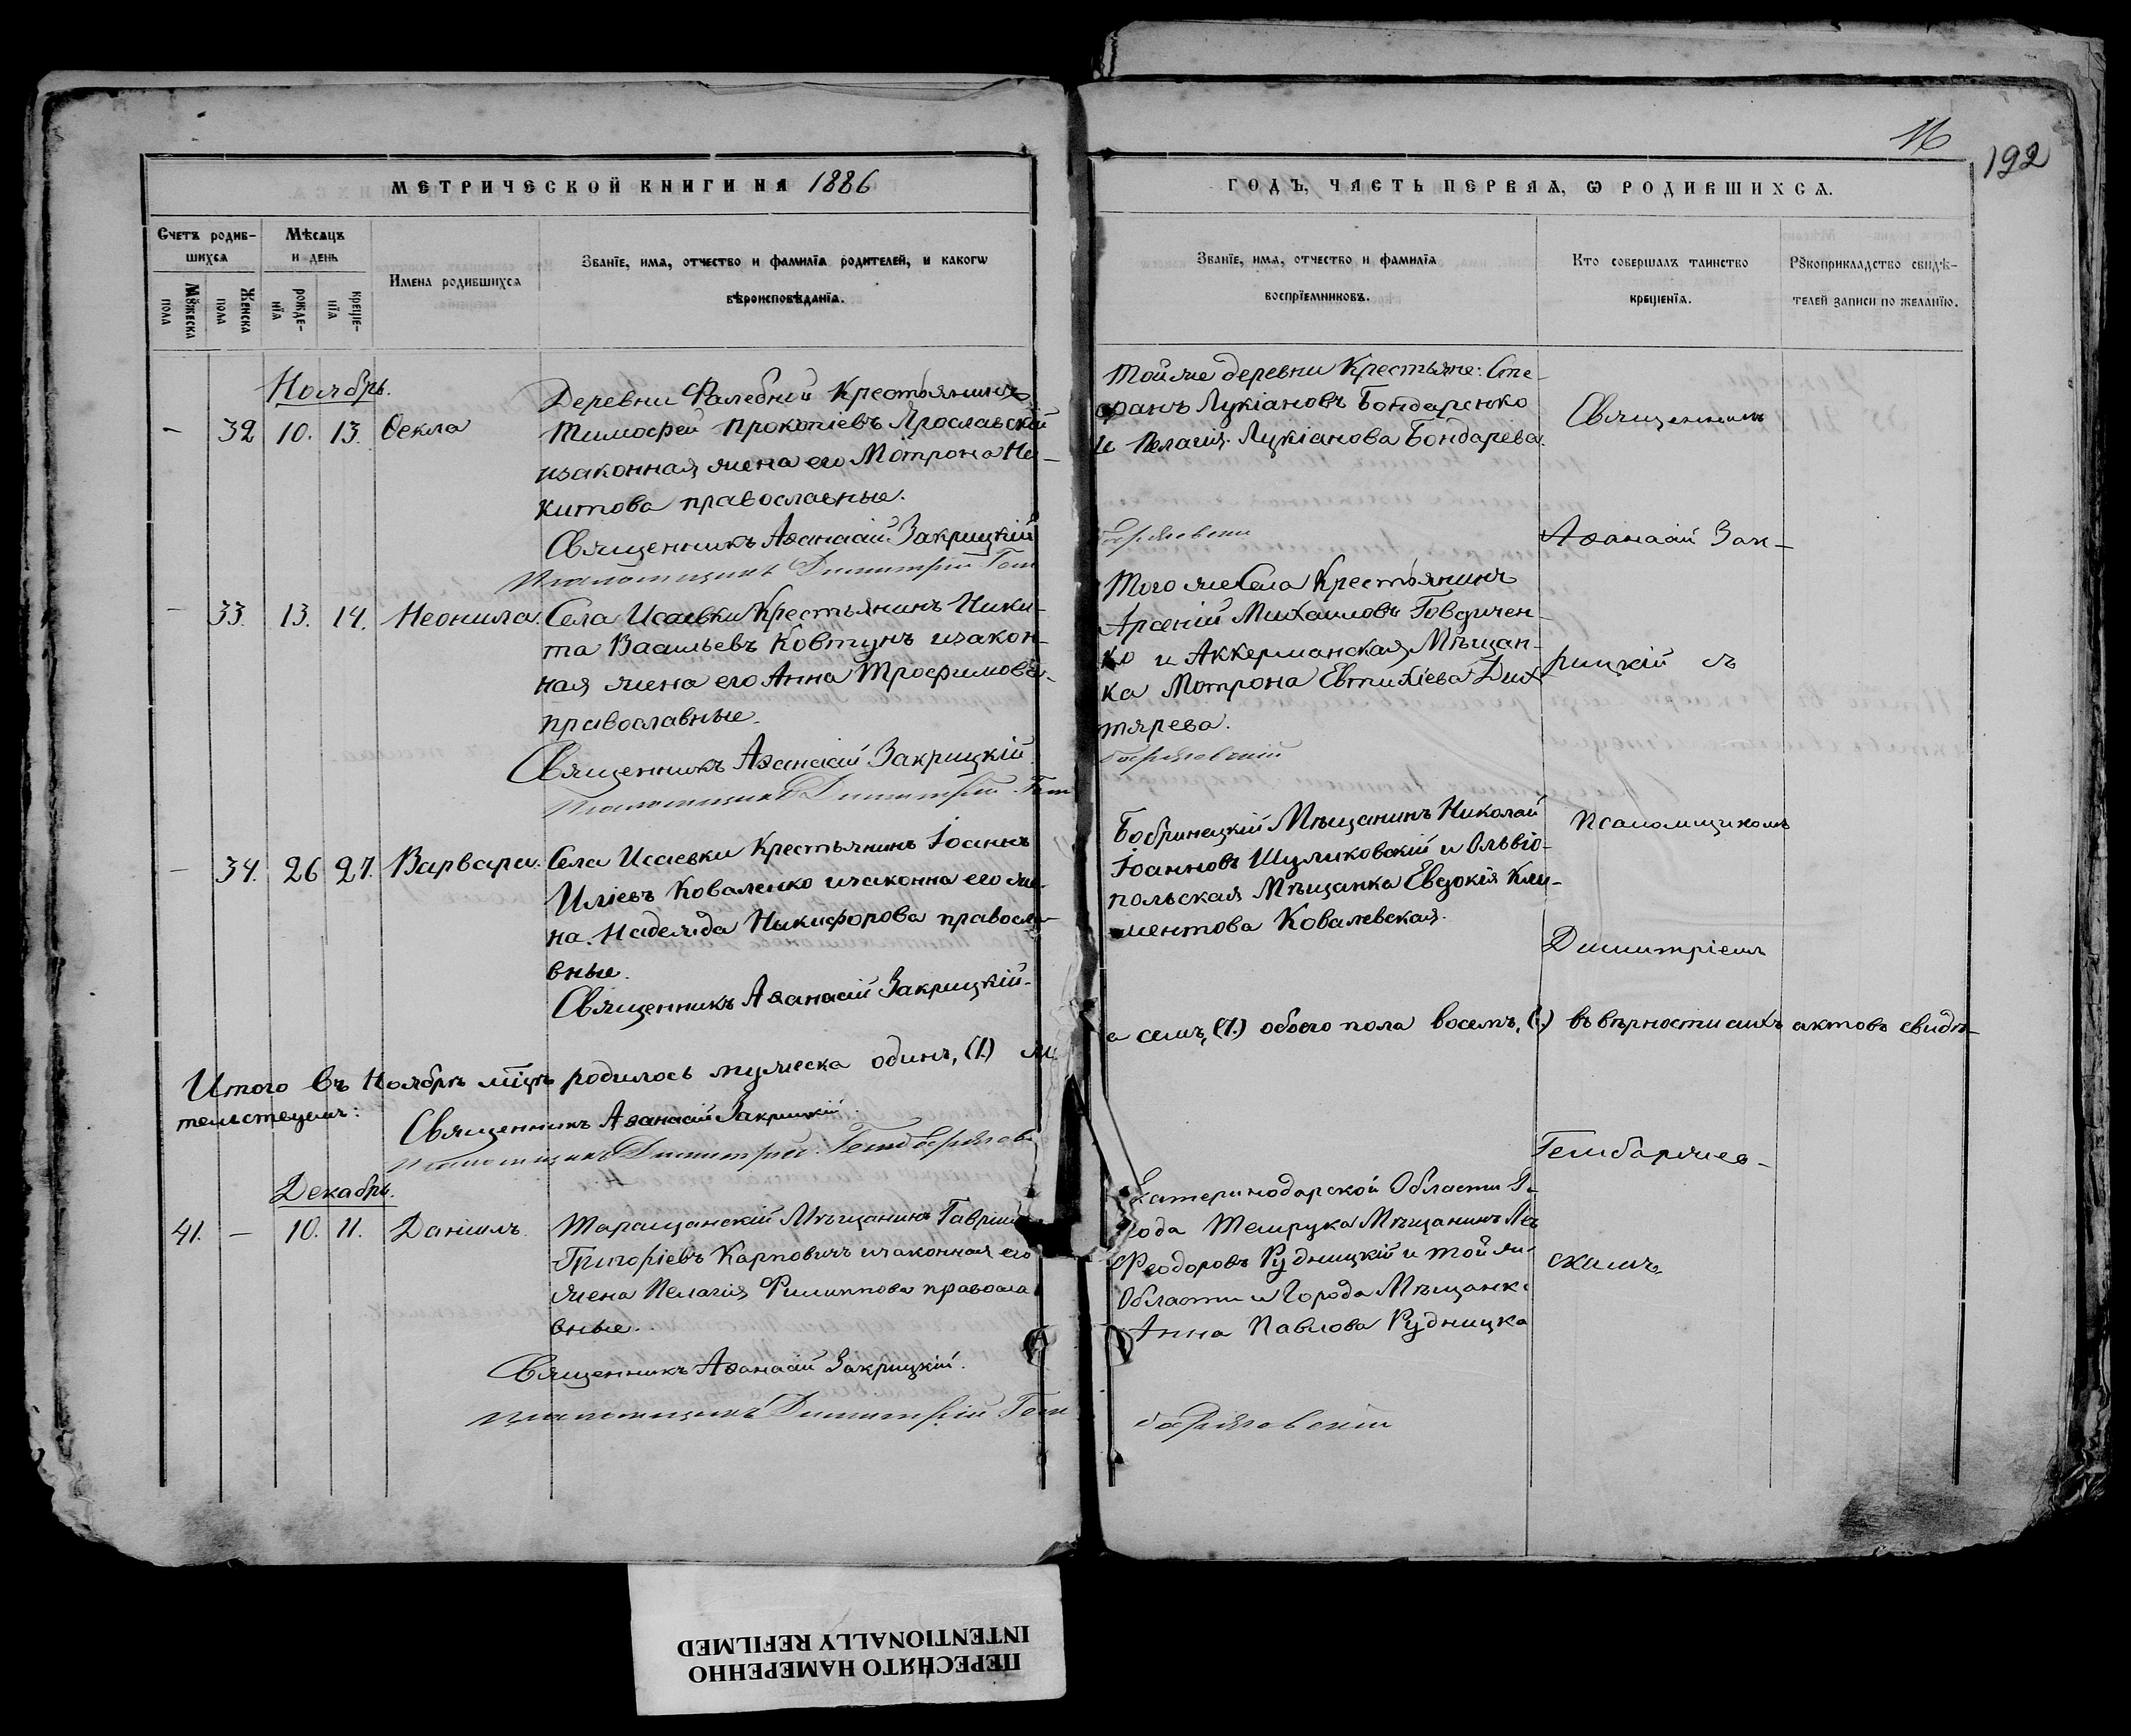 16
192
МЕТРИЧЕСКОЙ КНИГИ НА 1886
ГОДЪ, ЧАСТЬ ПЕРВАѦ, Ѡ РОДИВШИХСѦ.
Счетъ родив-
шихсѧ
Мѣсѧцъ
и день
Имена родившихсѧ
Званїе, имѧ, отчество и фамилїѧ родителей, и какогѡ
вѣроисповѣданїѧ.
Мꙋжеска
пола
Женска
пола
рожде-
нїѧ
креще-
нїѧ
Званїе, имѧ, отчество и фамилїѧ
воспрїемниковъ.
Кто совершалъ таинство
крещенїѧ.
Рꙋкоприкладство свидѣ-
телей записи по желанїю.
Ноябрь.
— 32 10. 13. Ѳекла
Деревни Крестьянинъ
Тимофей Прокопіевъ Ярославскій
изаконная жена его Мотрона Ни-
китова православные.
Священникъ Аѳанасій Закрицкій
Псаломщикъ Димитрій Гем
Тойже деревни Крестьяне: Сте-
фанъ Лукіановъ Бондаренко
и Пелагія Лукіанова Бондарева.
Священникъ
Аѳанасій Зак-
— 33. 13. 14. Неонила.
Села Исаевки Крестьянинъ Ники-
та Васильевъ Ковтунъ изакон-
ная жена его Анна Трофимова
православные.
Священникъ Аѳанасій Закрицкій
Псаломщикъ Димитрій Гем
Того же Села Крестьянинъ
Арсеній Михаиловъ Говдичен-
ко и Аккерманская Мѣщан-
ка Мотрона Евтихіева Дих
тярева.
рицкій съ
— 34. 26 27. Варвара.
Села Исаевки Крестьянинъ Іоаннъ
Иліевъ Коваленко изаконна его же-
на Надежда Никифорова правосла-
вные.
Священникъ Аѳанасій Закрицкій.
Бобринецкій Мѣщанинъ Николай
Іоанновъ Шуликовскій и Ольвіо-
польская Мѣщанка Евдокія Кли-
ментова Ковалевская.
Псаломщикомъ
Димитріемъ
Итого въ Ноябрѣ мцѣ родилось мужеска одинъ, (1.) ж
а семь, (7.) обоего пола восемь, въ вѣрности сихъ актовъ свидѣ-
тельствуемъ:
Священникъ Аѳанасій Закрицкій.
Псаломщикъ Димитрій
Гембаржев-
Декабрь.
41. — 10. 11. Даніилъ.
Таращанскій Мѣщанинъ Гавріилъ
Григоріевъ Карповичъ изаконная его
жена Пелагія Филиппова правосла
вные.
Священникъ Аѳанасій Закрицкій.
Псаломщикъ Димитрій Гем
Екатеринодарской Области Го-
рода Темрука Мѣщанинъ
Феодоровъ Рудницкій и той же
Области и Города Мѣщанка
Анна Павлова Рудницка
скимъ.
ПЕРЕСНЯТО НАМЕРЕННО
INTENTIONALLY REFILMED